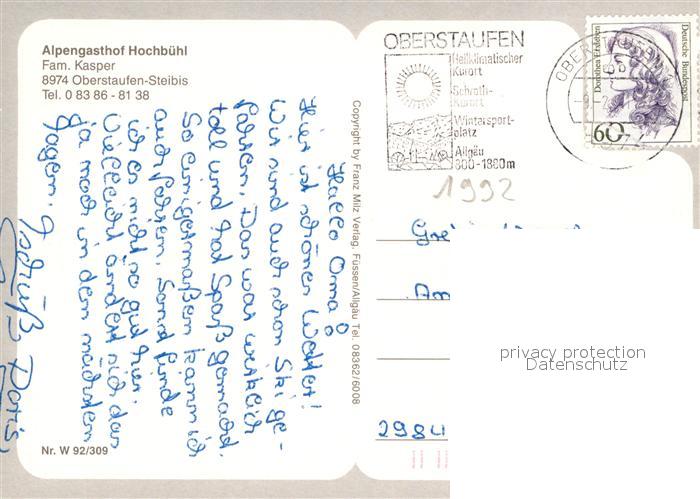 Alpengasthof Hochbühl
Fam. Kasper
8974 Oberstaufen-Steibis
Tel. 0 83 86 - 81 38
Hallo Oma!
Hier ist schönes Wetter!
Wir sind auch schon Ski ge-
fahren. Das war wirklich
toll und hat Spaß gemacht.
So einigermaßen kann ich
auch fahren. Sonst finde
ich es nicht so gut hier.
Vielleicht ändert sich das
ja noch in den nächsten
Tagen.
Tschüß Doris
Nr. W 92/309
Copyright by Franz Milz Verlag, Füssen/Allgäu Tel. 08362/6008
OBERSTAUFEN
Heilklimatischer
Kurort
Schroth-
Kurort
Wintersport-
platz
Allgäu
800-1880m
Dorothea Erxleben
Deutsche Bundespost
60
1992
2984
privacy protection
Datenschutz